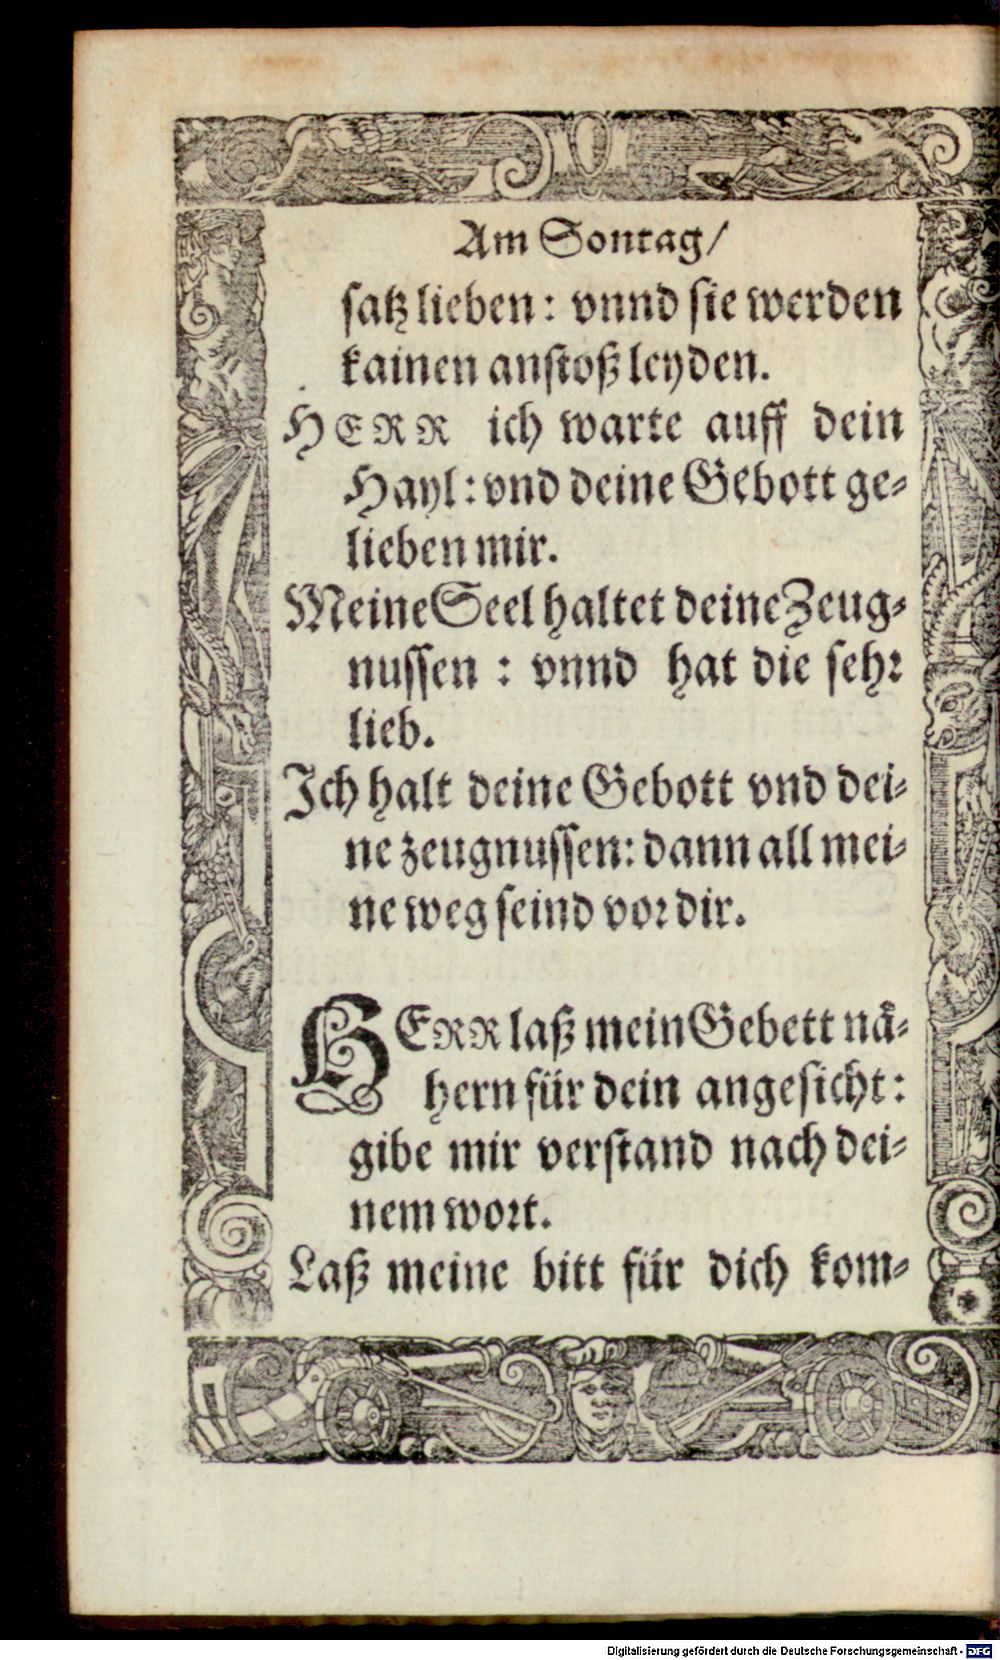 Am Sontag/
satz lieben: vnnd sie werden
kainen anstoß leyden.
HERR ich warte auff dein
Hayl: vnd deine Gebott ge-
lieben mir.
Meine Seel haltet deine Zeug-
nussen : vnnd hat die sehr
lieb.
Ich halt deine Gebott vnd dei-
ne zeugnussen: dann all mei-
ne weg seind vor dir.
HERR laß mein Gebett nä-
hern für dein angesicht:
gibe mir verstand nach dei-
nem wort.
Laß meine bitt für dich kom-
Digitalisierung gefördert durch die Deutsche Forschungsgemeinschaft - DFG